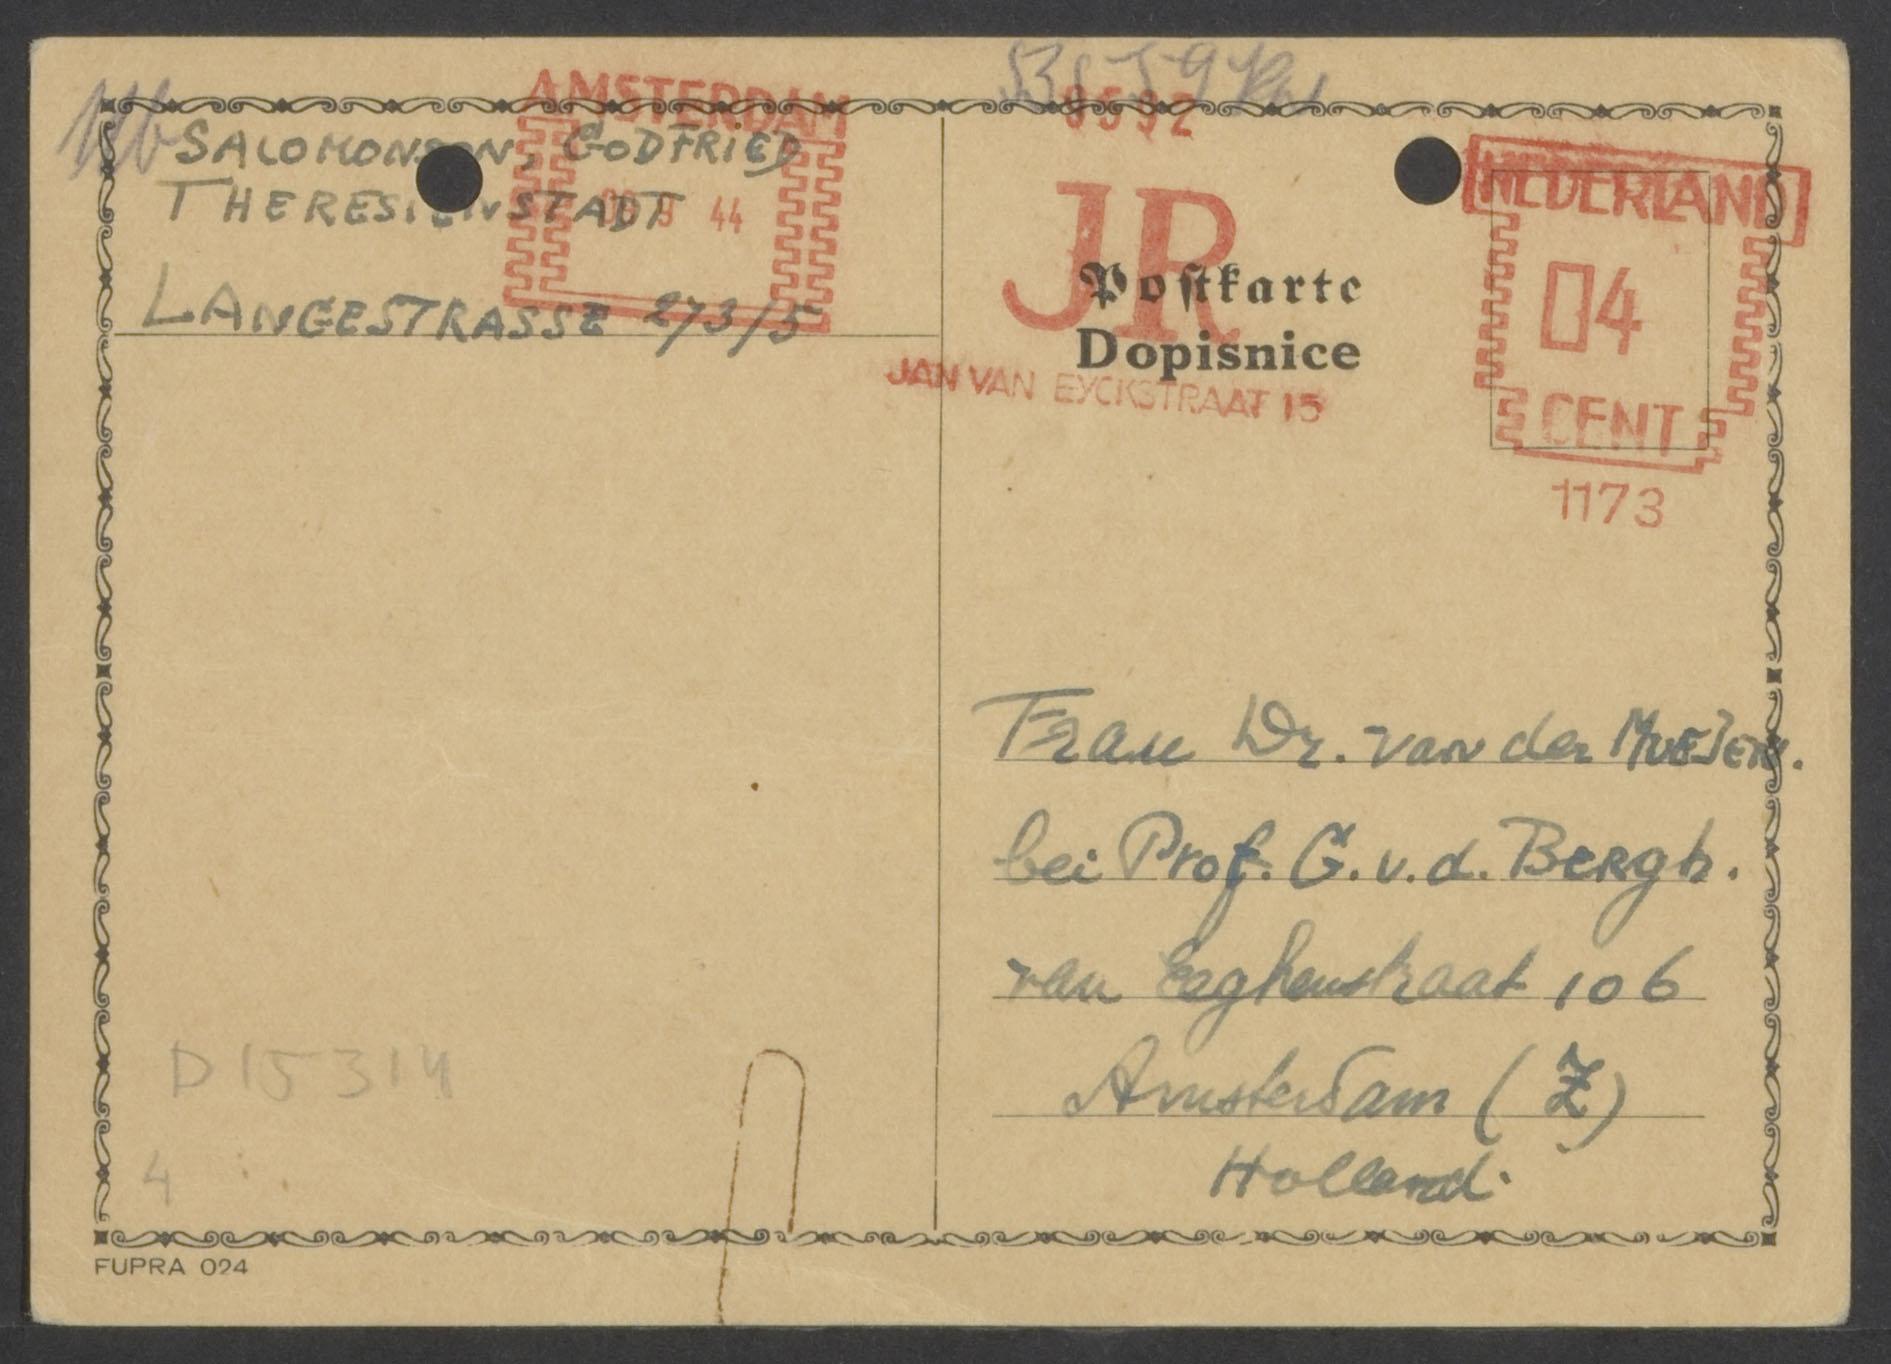 AMSTERDAM
SALOMONSON, GODFRIED
THERESIENSTADT
44
LANGESTRASSE 273/5
JR
Postkarte
Dopisnice
JAN VAN EYCKSTRAAT 15
NEDERLAND
04
CENT
1173
Frau Dr. van der
bei Prof. G. v. d. Bergh.
van Eeghenstraat 106
Amsterdam (Z)
Holland.
D15314
4
FUPRA 024